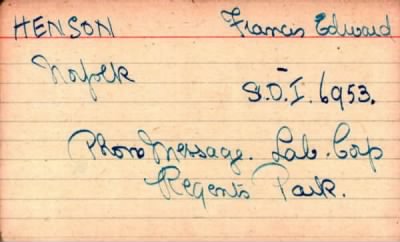 HENSON Francis Edward
Norfolk
S.D.I. 6953.
Phono Message. Lab. Corp
Regents Park.